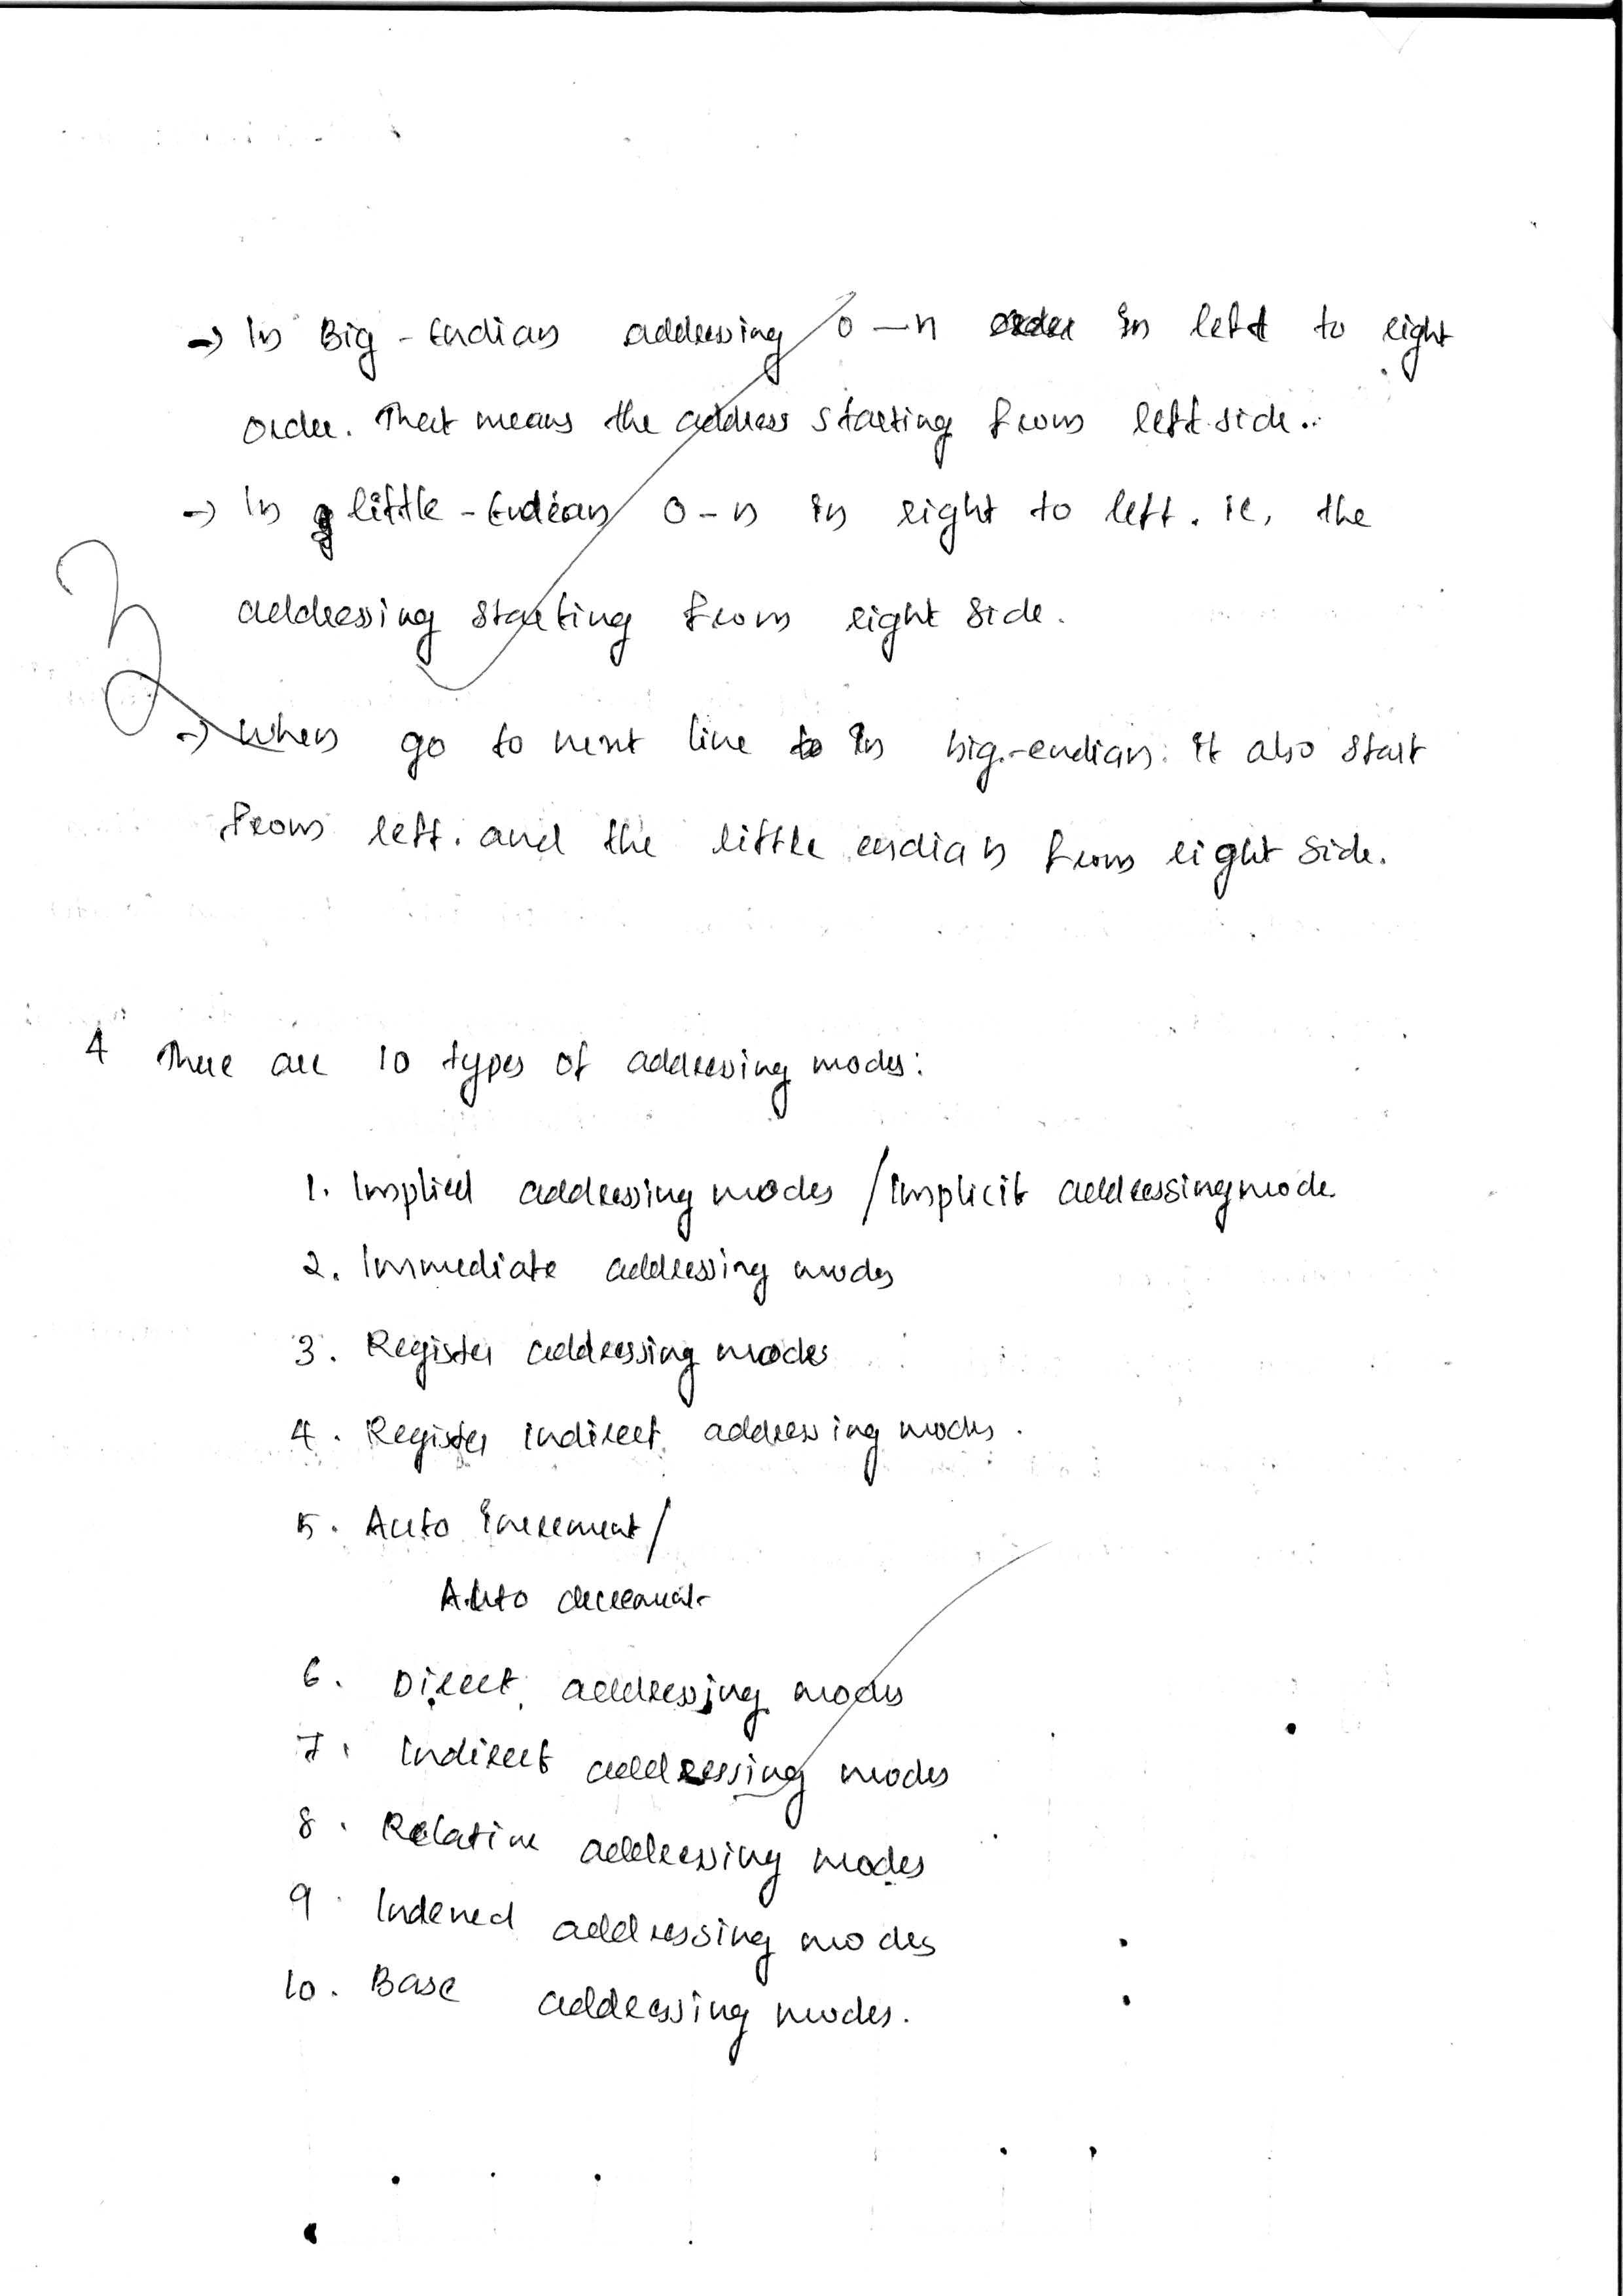 → In Big-Endian addressing 0-n in left to right
order. That means the address starting from left side.
→ In little-Endian 0-n in right to left. ie, the
addressing starting from right side.
→ When go to next line in big-endian. it also start
from left. and the little endian from right side.
4 There are 10 types of addressing modes:
1. Implied addressing modes / Implicit addressing mode
2. Immediate addressing modes
3. Register addressing modes
4. Register indirect addressing modes.
5. Auto increment/
Auto decrement
6. Direct addressing modes
7. Indirect addressing modes
8. Relative addressing modes
9. Indexed addressing modes
10. Base addressing modes.